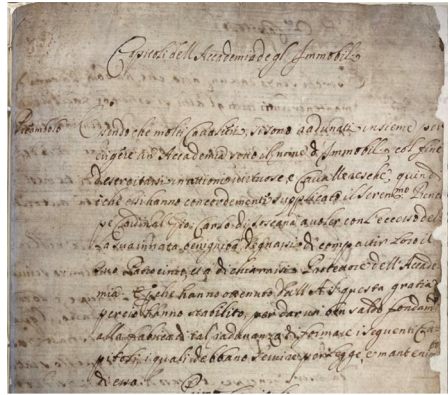 Capitoli dell'Accademia degl'Immobili
Preambolo
Essendo che molti Cavalieri si sono adunati insieme per
erigere un'Accademia sotto il nome d'Immobili col fine
d'esercitarsi in attioni virtuose, e Cavalleresche, quindi
è che essi hanno concordemente supplicato il Seren.mo Princi
pe Cardinal Gio: Carlo di Toscana a voler con l'eccesso del
la sua innata benignità degnarsi di compartir loro il
suo Patrocinio, e di chiamarsi Protettore dell'Accade
mia. E perche hanno ottenuto dall'A. S. questa gratia
perciò hanno stabilito, per dar un ben saldo fondam.to
alla fabbrica di tal radunanza di formare i seguenti Ca
pitoli, i quali debbano servire per legge, e mantenim.to
di essa.